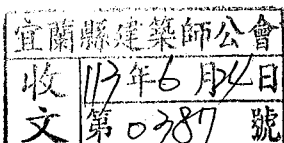 宜蘭縣建築師公會
收文
113年6月24日
第0387號